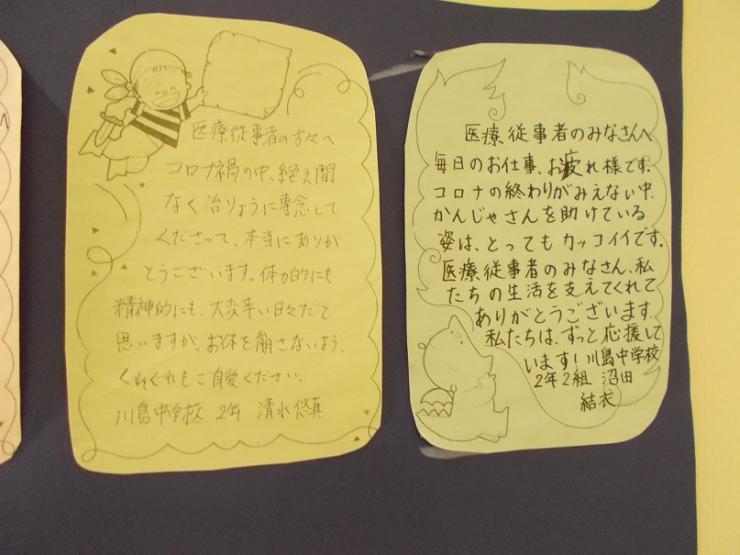 医療従事者の方々へ
コロナ禍の中、絶え間
なく治りょうに専念して
くださって、本当にありが
とうございます。体力的にも
精神的にも、大変辛い日々だと
思いますが、お体を崩さないよう、
くれぐれもご自愛ください。
川島中学校 2年 清水悠真
医療従事者のみなさんへ
毎日のお仕事、お疲れ様です。
コロナの終わりがみえない中、
かんじゃさんを助けている
姿は、とってもカッコイイです。
医療従事者のみなさん、私
たちの生活を支えてくれて
ありがとうございます。
私たちは、ずっと応援して
います!川島中学校
2年2組 沼田
結衣